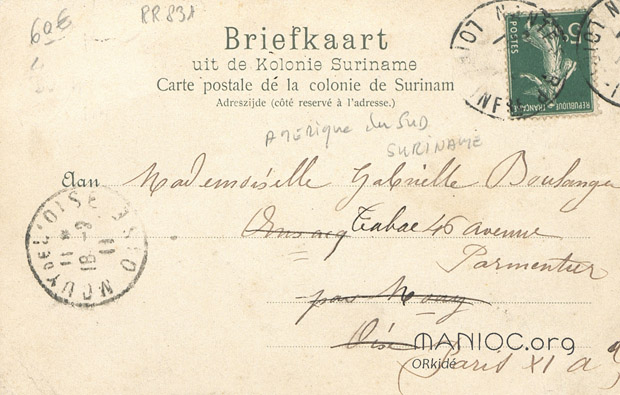 60€
RR831
Briefkaart
uit de Kolonie Suriname
Carte postale de la colonie de Surinam
Adreszijde (côté reservé à l'adresse.)
5c
POSTES
REPUBLIQUE FRANÇAISE
AMERIQUE du SUD
SURINAME
Aan Mademoiselle Gabrielle Boulanger
Ansacq Tabac 46 avenue
Parmentier
par Mouy
Oise
Paris XI
MOUY DE L'OISE
18-9
11
MANIOC.org
ORkidé